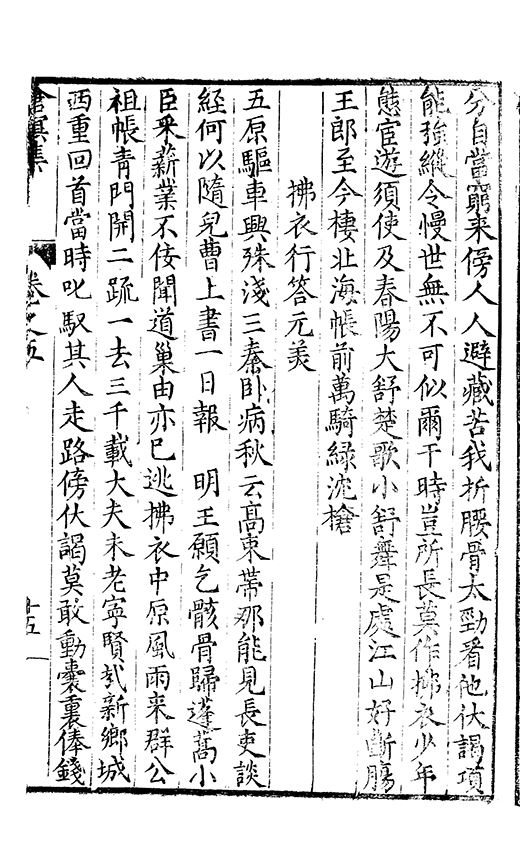 分自當窮來傍人人避藏苦我折腰骨太勁看他伏謁項
能強縱令慢世無不可似爾干時豈所長莫作拂衣少年
態宦遊須使及春陽大舒楚歌小舒舞是處江山好斷腸
王郎至今棲北海帳前萬騎綠沈槍
拂衣行答元美
五原驅車興殊淺三秦臥病秋云高束帶那能見長吏談
經何以隨兒曹上書一日報　明王願乞骸骨歸蓬蒿小
臣采薪業不佞聞道巢由亦已逃拂衣中原風雨來群公
祖帳青門開二疏一去三千載大夫未老寧賢哉新鄉城
西重回首當時叱馭其人走路傍伏謁莫敢動囊裏俸錢
滄溟集
卷之五
十五